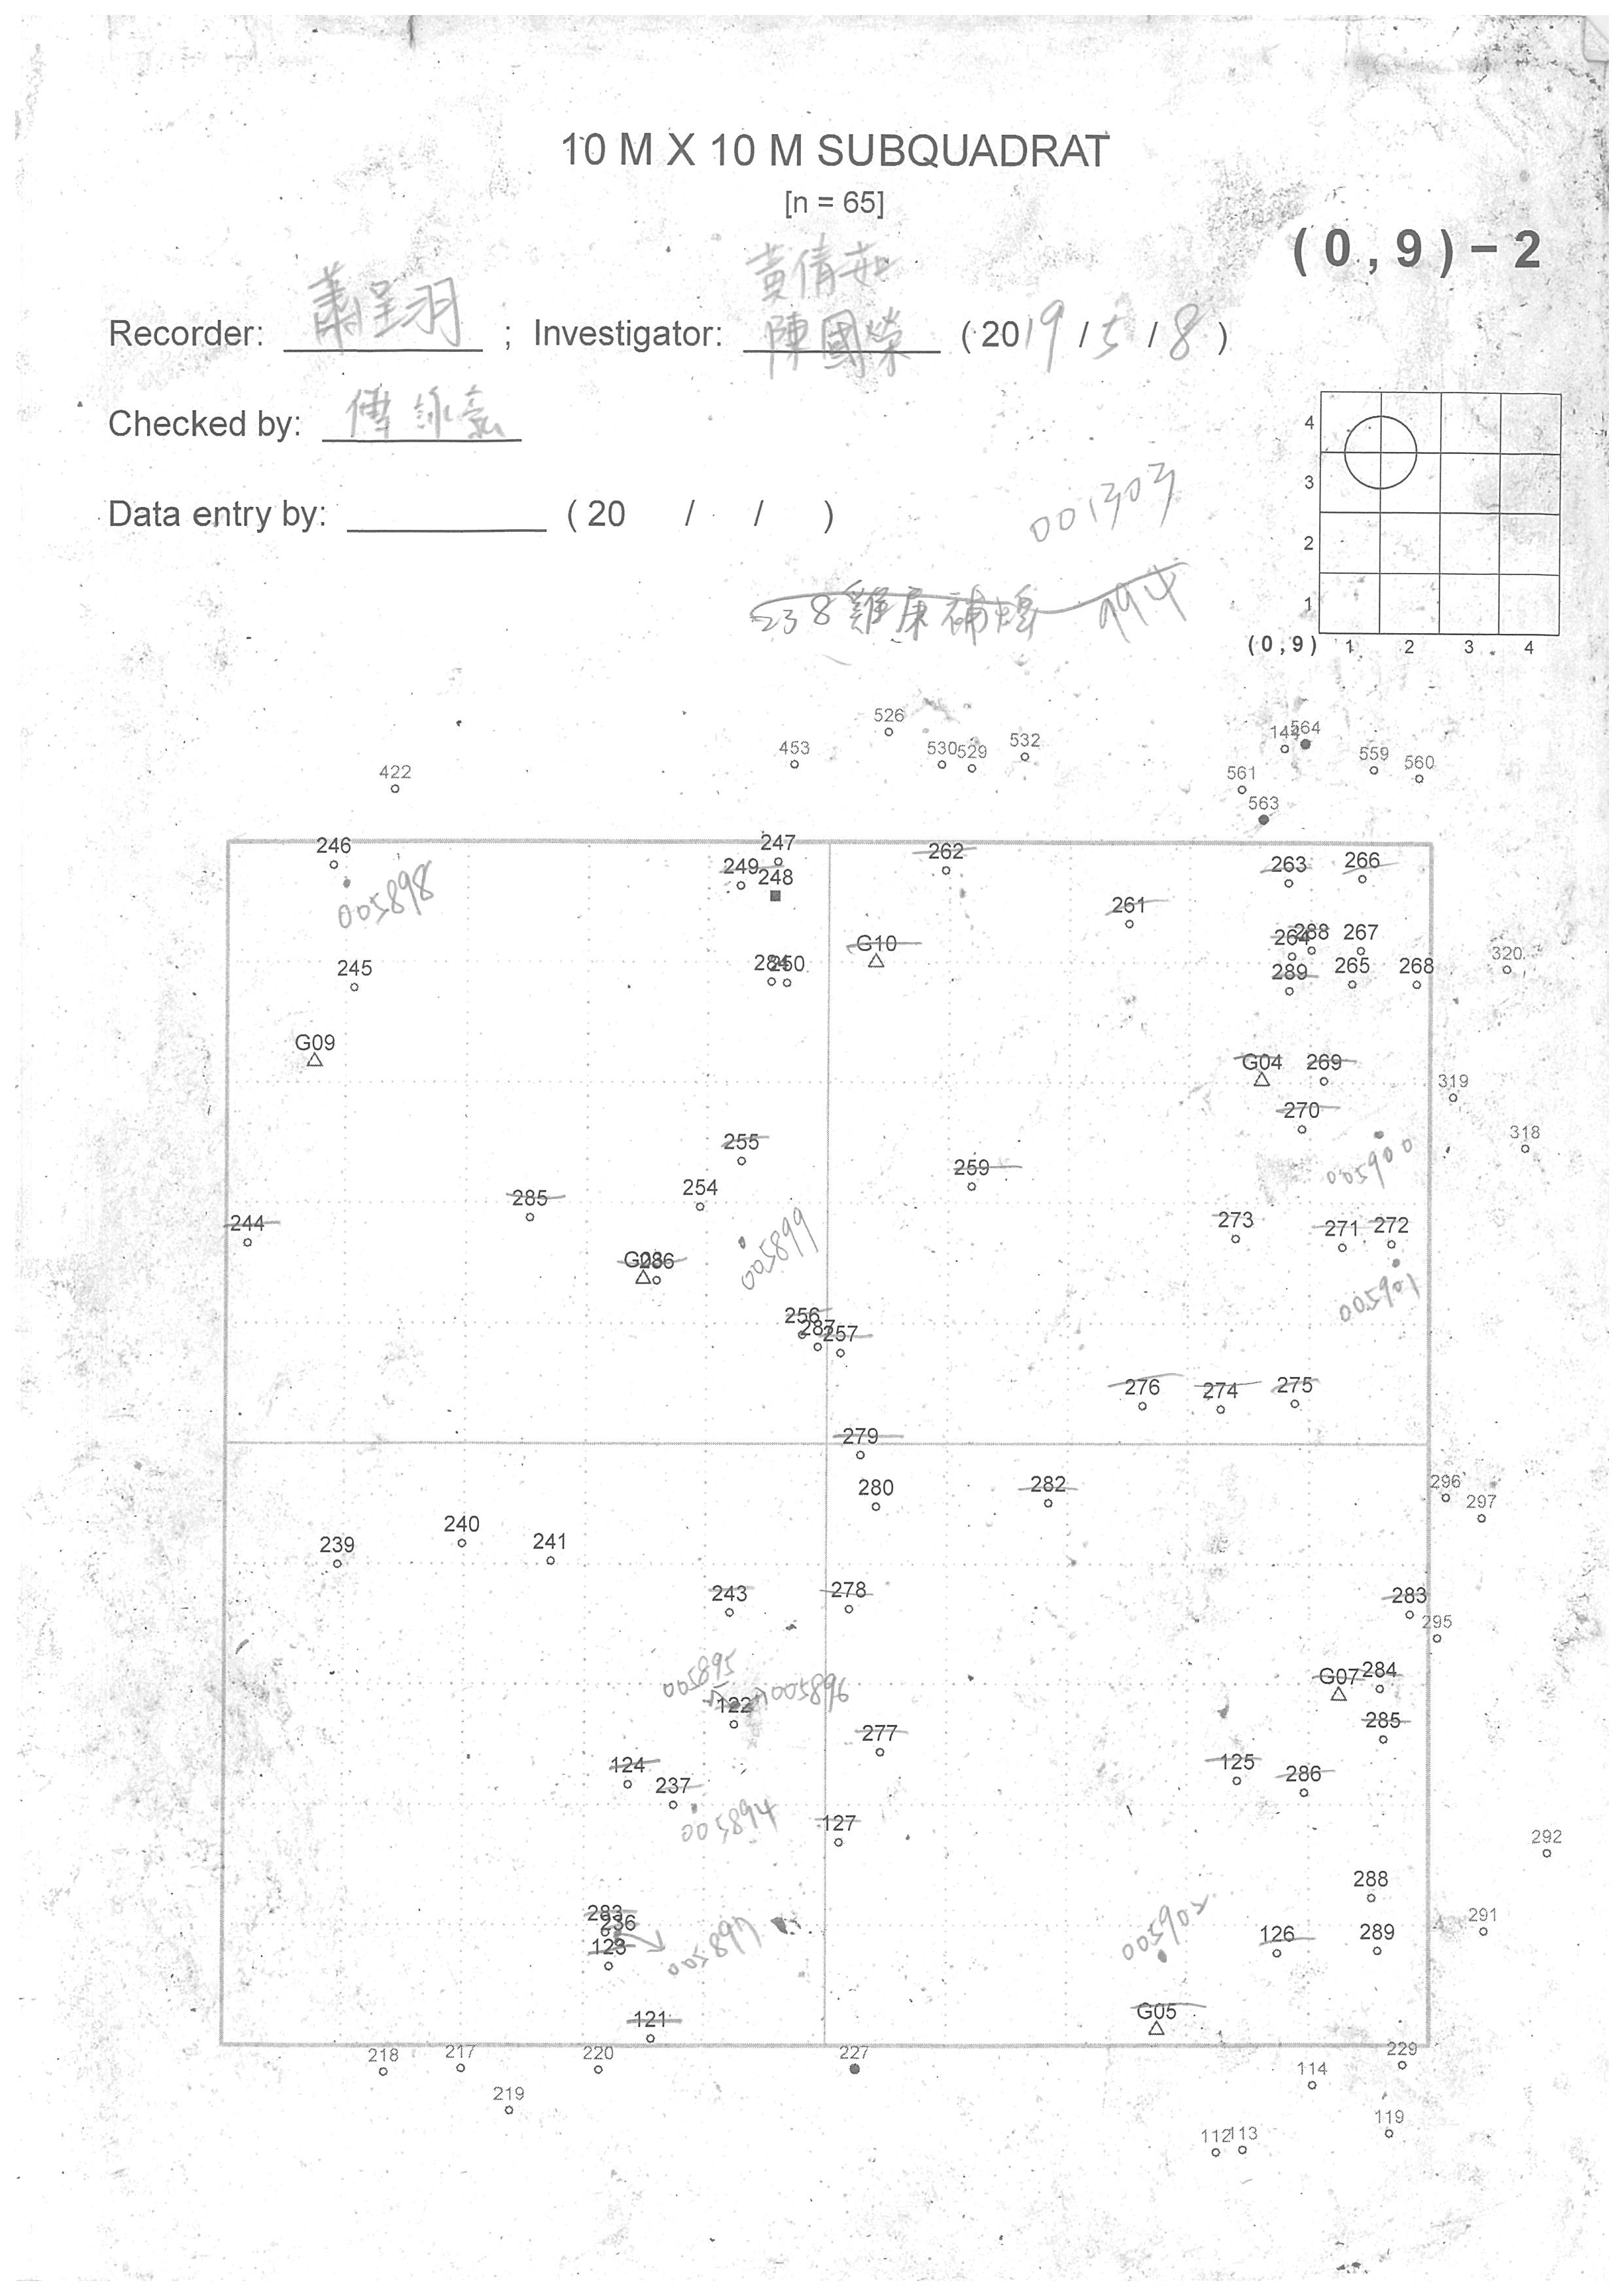 10 M X 10 M SUBQUADRAT
[n = 65]
(0,9)-2
黃倩茹
Recorder: 蕭呈羽 ; Investigator: 陳國榮 (2019/5/8)
Checked by: 傅詠
Data entry by: (20 / / )
001303
538 補 994
4
3
2
1
(0,9) 1 2 3 4
526
453 530 529 532 144 564
422 561 559 560
563
246 247
249 248 262 263 266
005898 261
G10 264 288 267
245 284 250 289 265 268 320
G09 G04 269 319
270 318
255 259 005900
285 254
244 273 271 272
G03 286 005899
005901
256 287 257
276 274 275
279
280 282 296 297
239 240 241
243 278 283
295
005895 005896 G07 284
122
277 285
124 237 125 286
005894 127
292
288
283 236 005902 291
123 005897 126 289
121 G05
218 217 220 227 229
219 114
119
112 113